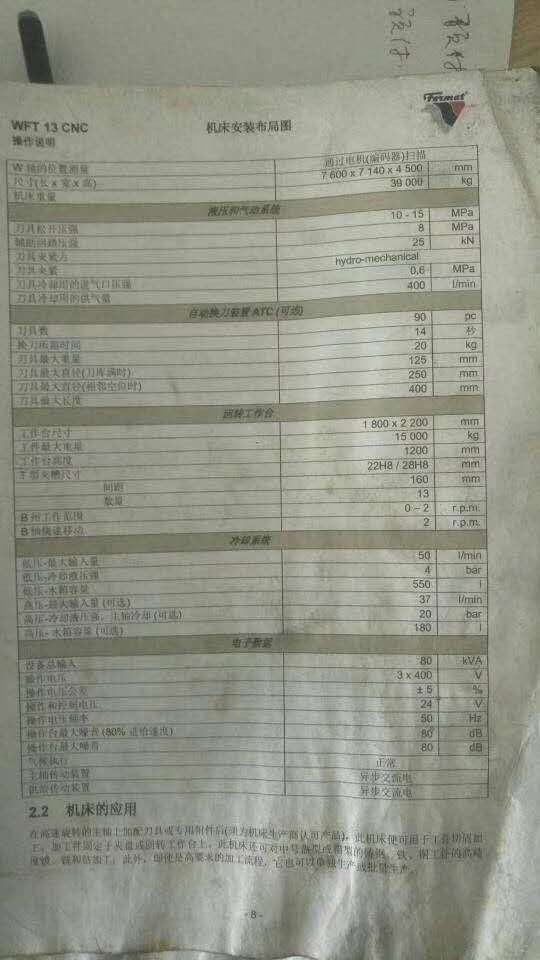 Fermat
WFT 13 CNC
机床安装布局图
操作说明
W 轴的位置测量 通过电机(编码器)扫描
尺寸(长 x 宽 x 高) 7 600 x 7 140 x 4 500 mm
机床重量 39 000 kg
液压和气动系统
刀具松开压强 10 - 15 MPa
辅助回路压强 8 MPa
刀具夹紧力 25 kN
刀具夹紧 hydro-mechanical
刀具冷却用的进气口压强 0,6 MPa
刀具冷却用的供气量 400 l/min
自动换刀装置 ATC (可选)
刀具数 90 pc
换刀所需时间 14 秒
刀具最大重量 20 kg
刀具最大直径(刀库满时) 125 mm
刀具最大直径(相邻空位时) 250 mm
刀具最大长度 400 mm
回转工作台
工作台尺寸 1 800 x 2 200 mm
工件最大重量 15 000 kg
工作台高度 1200 mm
T 型夹槽尺寸 22H8 / 28H8 mm
间距 160 mm
数量 13
B 轴工作范围 0 – 2 r.p.m.
B 轴快速移动 2 r.p.m.
冷却系统
低压-最大输入量 50 l/min
低压-冷却液压强 4 bar
低压-水箱容量 550 l
高压-最大输入量 (可选) 37 l/min
高压-冷却液压强，主轴冷却 (可选) 20 bar
高压- 水箱容量 (可选) 180 l
电子数据
设备总输入 80 kVA
操作电压 3 x 400 V
操作电压公差 ± 5 %
操作和控制电压 24 V
操作电压频率 50 Hz
操作台最大噪音 (80% 进给速度) 80 dB
操作台最大噪音 80 dB
气候执行 正常
主轴传动装置 异步交流电
供给传动装置 异步交流电
2.2 机床的应用
在高速旋转的主轴上装配刀具或专用附件后(须为机床生产商认可产品)，此机床便可用于工件切屑加
工。加工件固定于夹盘或回转工作台上。此机床还可对中号箱型或箱型的铸钢、铁、钢工件的高精
度镗、铣和钻加工；此外，即使是高要求的加工流程，它也可以单独生产或批量生产。
- 8 -